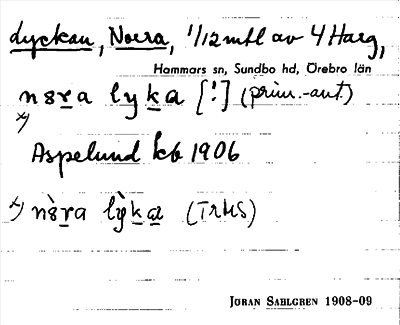 lyckan, Norra, 1/12 mtl av 4 Harg,
Hammars sn, Sundbo hd, Örebro län
nsra lyka [!] (prim.-ant.)
x)
Aspelund kb 1906
x) ns̀ra lỳka (TRMS)
JÖRAN SAHLGREN 1908-09